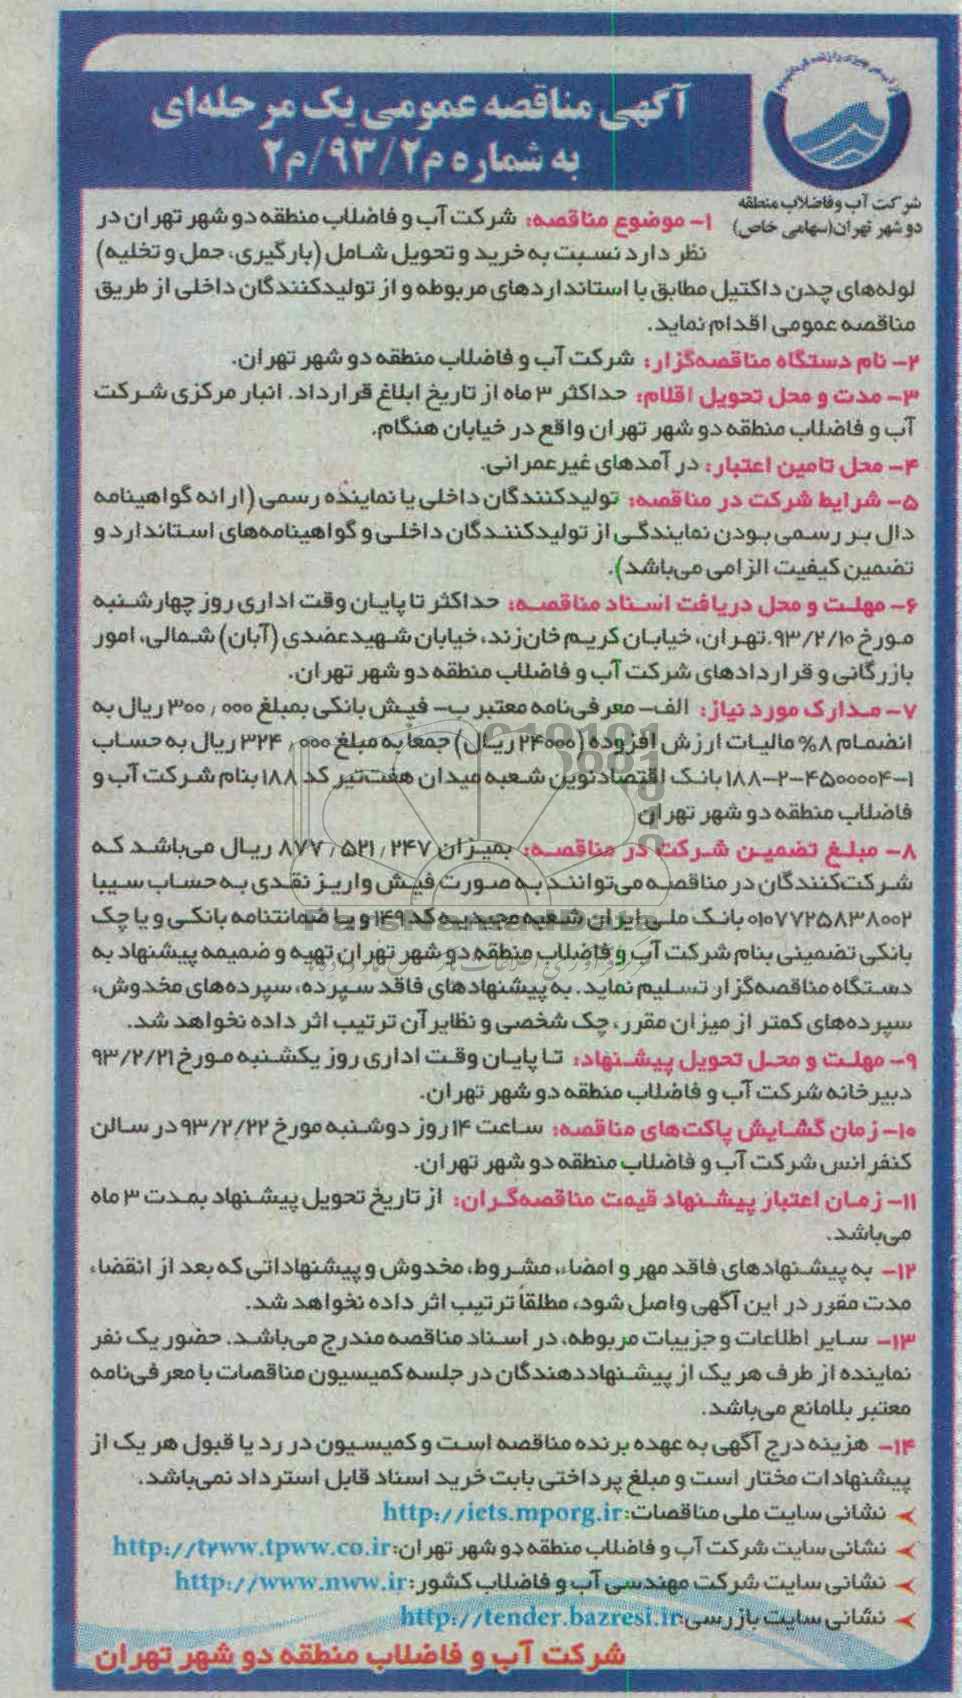 آگهی مناقصه عمومی یک مرحله‌ای
به شماره م۹۳/۲/م۲
شرکت آب و فاضلاب منطقه
دو شهر تهران(سهامی خاص)
۱- موضوع مناقصه: شرکت آب و فاضلاب منطقه دو شهر تهران در
نظر دارد نسبت به خرید و تحویل شامل (بارگیری، حمل و تخلیه)
لوله‌های چدن داکتیل مطابق با استانداردهای مربوطه و از تولیدکنندگان داخلی از طریق
مناقصه عمومی اقدام نماید.
۲- نام دستگاه مناقصه‌گزار: شرکت آب و فاضلاب منطقه دو شهر تهران.
۳- مدت و محل تحویل اقلام: حداکثر ۳ ماه از تاریخ ابلاغ قرارداد. انبار مرکزی شرکت
آب و فاضلاب منطقه دو شهر تهران واقع در خیابان هنگام.
۴- محل تامین اعتبار: درآمدهای غیرعمرانی.
۵- شرایط شرکت در مناقصه: تولیدکنندگان داخلی یا نماینده رسمی (ارائه گواهینامه
دال بر رسمی بودن نمایندگی از تولیدکنندگان داخلی و گواهینامه‌های استاندارد و
تضمین کیفیت الزامی می‌باشد).
۶- مهلت و محل دریافت اسناد مناقصه: حداکثر تا پایان وقت اداری روز چهارشنبه
مورخ ۹۳/۲/۱۰. تهران، خیابان کریم خان‌زند، خیابان شهیدعضدی (آبان) شمالی، امور
بازرگانی و قراردادهای شرکت آب و فاضلاب منطقه دو شهر تهران.
۷- مدارک مورد نیاز: الف- معرفی‌نامه معتبر ب- فیش بانکی بمبلغ ۳۰۰٫۰۰۰ ریال به
انضمام ۸% مالیات ارزش افزوده (۲۴۰۰۰ ریال) جمعا به مبلغ ۳۲۴٫۰۰۰ ریال به حساب
۱-۴۵۰۰۰۰۴-۲-۱۸۸ بانک اقتصادنوین شعبه میدان هفت‌تیر کد ۱۸۸ بنام شرکت آب و
فاضلاب منطقه دو شهر تهران
۸- مبلغ تضمین شرکت در مناقصه: بمیزان ۸۷۷٫۵۲۱٫۲۴۷ ریال می‌باشد که
شرکت‌کنندگان در مناقصه می‌توانند به صورت فیش واریز نقدی به حساب سیبا
۰۱۰۷۷۲۵۸۳۸۰۰۲ بانک ملی ایران شعبه مجیدیه کد ۱۴۹ و یا ضمانتنامه بانکی و یا چک
بانکی تضمینی بنام شرکت آب و فاضلاب منطقه دو شهر تهران تهیه و ضمیمه پیشنهاد به
دستگاه مناقصه‌گزار تسلیم نماید. به پیشنهادهای فاقد سپرده، سپرده‌های مخدوش،
سپرده‌های کمتر از میزان مقرر، چک شخصی و نظایر آن ترتیب اثر داده نخواهد شد.
۹- مهلت و محل تحویل پیشنهاد: تا پایان وقت اداری روز یکشنبه مورخ ۹۳/۲/۲۱
دبیرخانه شرکت آب و فاضلاب منطقه دو شهر تهران.
۱۰- زمان گشایش پاکت‌های مناقصه: ساعت ۱۴ روز دوشنبه مورخ ۹۳/۲/۲۲ در سالن
کنفرانس شرکت آب و فاضلاب منطقه دو شهر تهران.
۱۱- زمان اعتبار پیشنهاد قیمت مناقصه‌گران: از تاریخ تحویل پیشنهاد بمدت ۳ ماه
می‌باشد.
۱۲- به پیشنهادهای فاقد مهر و امضاء، مشروط، مخدوش و پیشنهاداتی که بعد از انقضاء
مدت مقرر در این آگهی واصل شود، مطلقاً ترتیب اثر داده نخواهد شد.
۱۳- سایر اطلاعات و جزییات مربوطه، در اسناد مناقصه مندرج می‌باشد. حضور یک نفر
نماینده از طرف هر یک از پیشنهاددهندگان در جلسه کمیسیون مناقصات با معرفی‌نامه
معتبر بلامانع می‌باشد.
۱۴- هزینه درج آگهی به عهده برنده مناقصه است و کمیسیون در رد یا قبول هر یک از
پیشنهادات مختار است و مبلغ پرداختی بابت خرید اسناد قابل استرداد نمی‌باشد.
نشانی سایت ملی مناقصات: http://iets.mporg.ir
نشانی سایت شرکت آب و فاضلاب منطقه دو شهر تهران: http://t۲ww.tpww.co.ir
نشانی سایت شرکت مهندسی آب و فاضلاب کشور: http://www.nww.ir
نشانی سایت بازرسی: http://tender.bazresi.ir
شرکت آب و فاضلاب منطقه دو شهر تهران
ParsNamadData